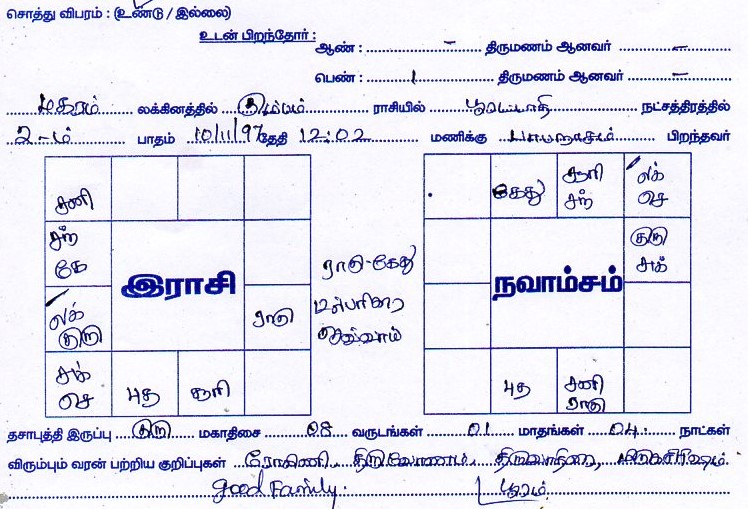 சொத்து விபரம் : (உண்டு / இல்லை)
உடன் பிறந்தோர் :
ஆண் : – திருமணம் ஆனவர் –
பெண் : 1 திருமணம் ஆனவர் –
மகரம் லக்கினத்தில் கும்பம் ராசியில் பூரட்டாதி நட்சத்திரத்தில்
2-ம் பாதம் 10/11/97 தேதி 12:02 மணிக்கு பிறந்தவர்
சனி
கேது
சூரி
சந்
லக்
செ
சந்
கே
இராசி
ராகு-கேது
நவாம்சம்
குரு
சுக்
லக்
குரு
ராகு
சுக்
செ
புத
சூரி
புத
சனி
ராகு
தசாபுத்தி இருப்பு குரு மகாதிசை 08 வருடங்கள் 01 மாதங்கள் 04 நாட்கள்
விரும்பும் வரன் பற்றிய குறிப்புகள் ரோகிணி, திருவோணம், திருவாதிரை, மிருகசிரிஷம்
good Family. பூரம்